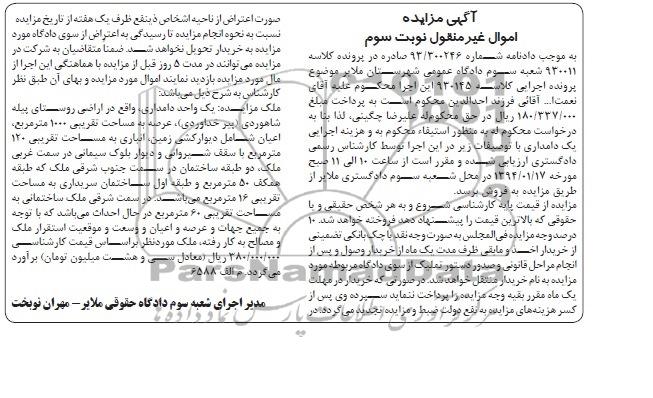 آگهی مزایده
اموال غیرمنقول نوبت سوم
به موجب دادنامه شماره ۹۳/۳۰۰۲۴۶ صادره در پرونده کلاسه
۹۳۰۰۱۱ شعبه سوم دادگاه عمومی شهرستان ملایر موضوع
پرونده اجرایی کلاسه ۹۳۰۱۴۵ این اجرا محکوم علیه آقای
نعمت‌ا... آقائی فرزند احدالدین محکوم است به پرداخت مبلغ
۱۸۰/۳۳۷/۰۰۰ ریال در حق محکوم‌له علیرضا چگینی، لذا بنا به
درخواست محکوم له به منظور استیفاء محکوم به و هزینه اجرایی
یک دامداری با توصیفات زیر در این اجرا توسط کارشناس رسمی
دادگستری ارزیابی شده و مقرر است از ساعت ۱۰ الی ۱۱ صبح
مورخه ۱۳۹۴/۰۱/۱۷ در محل شعبه سوم دادگستری ملایر از
طریق مزایده به فروش برسد.
مزایده از قیمت پایه کارشناسی شروع و به هر شخص حقیقی و یا
حقوقی که بالاترین قیمت را پیشنهاد دهد فروخته خواهد شد. ۱۰
درصد وجه مزایده فی‌المجلس به صورت وجه نقد یا چک بانکی تضمینی
از خریدار اخذ و مابقی ظرف مدت یک ماه از خریدار وصول و پس از
انجام مراحل قانونی و صدور دستور تملیک از سوی دادگاه مربوطه مورد
مزایده به نام خریدار منتقل خواهد شد. در صورتی که خریدار در مهلت
یک ماه مقرر بقیه وجه مزایده را پرداخت ننماید سپرده وی پس از
کسر هزینه‌های مزایده به نفع دولت ضبط و مزایده تجدید می‌گردد. در
صورت اعتراض از ناحیه اشخاص ذینفع ظرف یک هفته از تاریخ مزایده
نسبت به نحوه انجام مزایده تا رسیدگی به اعتراض از سوی دادگاه مورد
مزایده به خریدار تحویل نخواهد شد. ضمنا متقاضیان به شرکت در
مزایده می توانند در مدت ۵ روز قبل از مزایده با هماهنگی این اجرا از
مال مورد مزایده بازدید نمایند اموال مورد مزایده و بهای آن طبق نظر
کارشناس به شرح ذیل می‌باشد:
ملک مزایده: یک واحد دامداری، واقع در اراضی روستای پیله
شاهوردی (پیر خداوردی)، عرصه به مساحت تقریبی ۱۰۰۰ مترمربع،
اعیان شامل دیوارکشی زمین، انباری به مساحت تقریبی ۱۲۰
مترمربع با سقف شیروانی و دیوار بلوک سیمانی در سمت غربی
ملک، دو طبقه ساختمان در سمت جنوب شرقی ملک که طبقه
همکف ۵۰ مترمربع و طبقه اول ساختمان سریداری به مساحت
تقریبی ۱۶ مترمربع می‌باشد. در سمت شرقی ملک ساختمانی به
مساحت تقریبی ۶۰ مترمربع در حال احداث می‌باشد که با توجه
به جمیع جهات و عرصه و اعیان و وسعت و موقعیت استقرار ملک
و مصالح به کار رفته، ملک موردنظر براساس قیمت کارشناسی
۳۸۰/۰۰۰/۰۰۰ ریال (معادل سی و هشت میلیون تومان) برآورد
می‌گردد. م الف ۶۵۸۸
مدیر اجرای شعبه سوم دادگاه حقوقی ملایر – مهران نوبخت